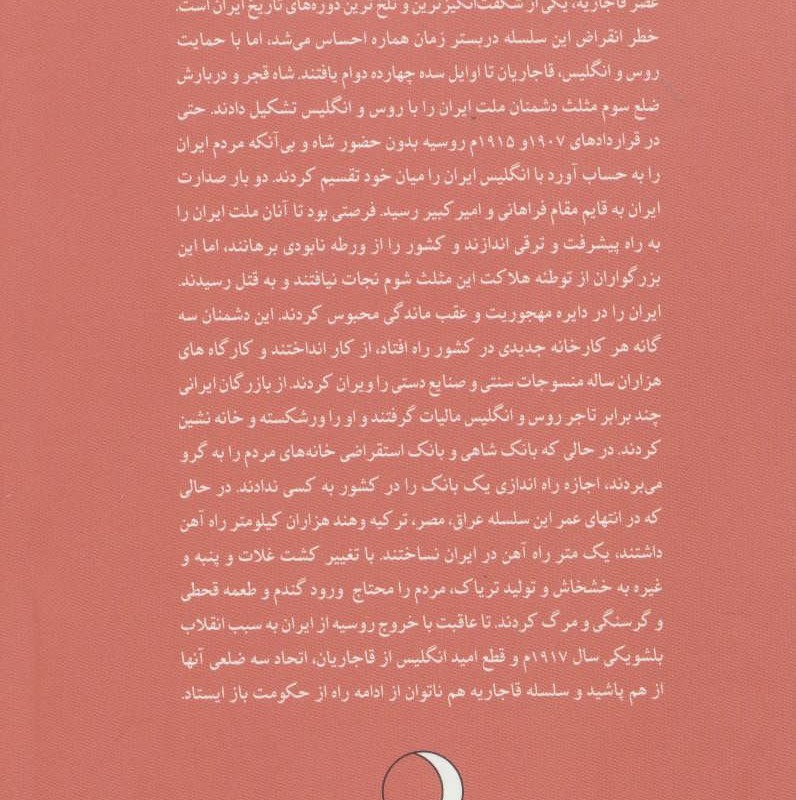 عصر قاجاریه، یکی از شگفت‌انگیزترین و تلخ ترین دوره‌های تاریخ ایران است.
خطر انقراض این سلسله دربستر زمان هماره احساس می‌شد، اما با حمایت
روس و انگلیس، قاجاریان تا اوایل سده چهارده دوام یافتند. شاه قجر و دربارش
ضلع سوم مثلث دشمنان ملت ایران را با روس و انگلیس تشکیل دادند. حتی
در قراردادهای ۱۹۰۷و ۱۹۱۵م روسیه بدون حضور شاه و بی‌آنکه مردم ایران
را به حساب آورد با انگلیس ایران را میان خود تقسیم کردند. دو بار صدارت
ایران به قایم مقام فراهانی و امیر کبیر رسید. فرصتی بود تا آنان ملت ایران را
به راه پیشرفت و ترقی اندازند و کشور را از ورطه نابودی برهانند، اما این
بزرگواران از توطئه هلاکت این مثلث شوم نجات نیافتند و به قتل رسیدند.
ایران را در دایره مهجوریت و عقب ماندگی محبوس کردند. این دشمنان سه
گانه هر کارخانه جدیدی در کشور راه افتاد، از کار انداختند و کارگاه های
هزاران ساله منسوجات سنتی و صنایع دستی را ویران کردند. از بازرگان ایرانی
چند برابر تاجر روس و انگلیس مالیات گرفتند و او را ورشکسته و خانه نشین
کردند. در حالی که بانک شاهی و بانک استقراضی خانه‌های مردم را به گرو
می‌بردند، اجازه راه اندازی یک بانک را در کشور به کسی ندادند. در حالی
که در انتهای عمر این سلسله عراق، مصر، ترکیه وهند هزاران کیلومتر راه آهن
داشتند، یک متر راه آهن در ایران نساختند. با تغییر کشت غلات و پنبه و
غیره به خشخاش و تولید تریاک، مردم را محتاج ورود گندم و طعمه قحطی
و گرسنگی و مرگ کردند. تا عاقبت با خروج روسیه از ایران به سبب انقلاب
بلشویکی سال ۱۹۱۷م و قطع امید انگلیس از قاجاریان، اتحاد سه ضلعی آنها
از هم پاشید و سلسله قاجاریه هم ناتوان از ادامه راه از حکومت باز ایستاد.